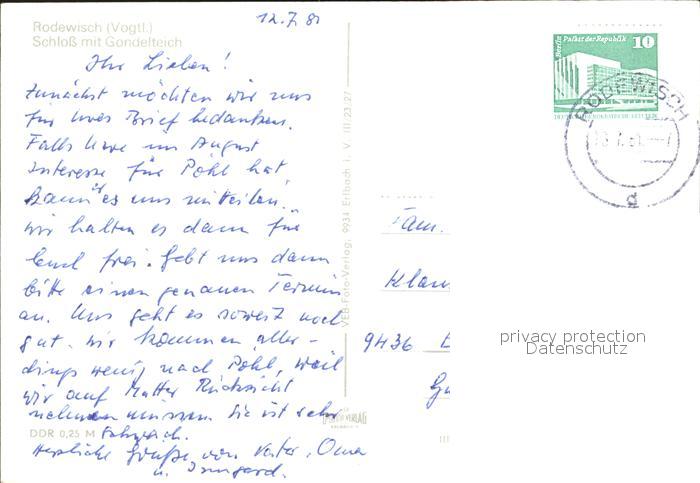 12.7.81
Rodewisch (Vogtl.)
Schloß mit Gondelteich
Ihr Lieben!
Zunächst möchten wir uns
für Eures Brief bedanken.
Falls Uwe im August
Interesse für Pöhl hat,
kann es uns mitteilen.
wir halten es dann für
Euch frei. Gebt uns dann
bitte einen genauen Termin
an. Uns geht es soweit noch
gut. Wir kommen aller-
dings wenig nach Pöhl, weil
wir auf Mutter Rücksicht
nehmen müssen. Sie ist sehr
schwach.
DDR 0,25 M
Herzliche Grüße von Vater, Oma
u. Irmgard.
VEB Foto-Verlag, 9934 Erlbach i. V. III/23/27
Berlin Palast der Republik
10
DEUTSCHE DEMOKRATISCHE REPUBLIK
RODEWISCH
d
Fam.
Klau
9436
privacy protection
Datenschutz